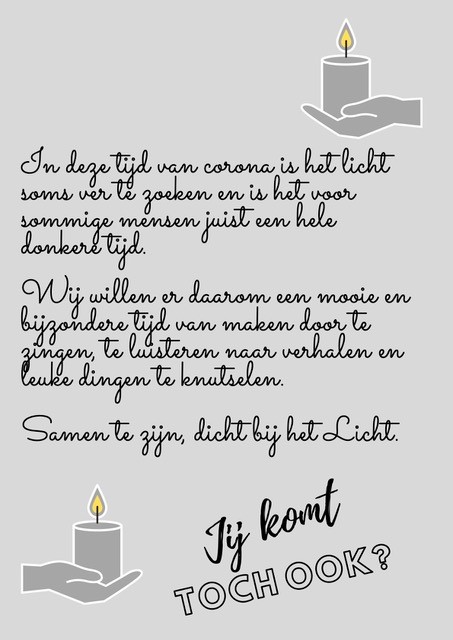 In deze tijd van corona is het licht
soms ver te zoeken en is het voor
sommige mensen juist een hele
donkere tijd.
Wij willen er daarom een mooie en
bijzondere tijd van maken door te
zingen, te luisteren naar verhalen en
leuke dingen te knutselen.
Samen te zijn, dicht bij het Licht.
Jij komt
TOCH OOK?